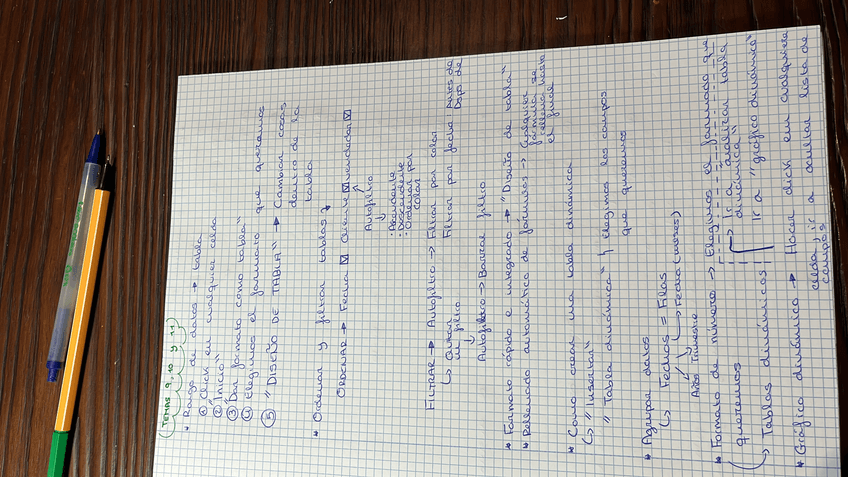 (TEMAS 9, 10 y 11)
* Rango de datos → tabla
① Click en cualquier celda
② "Inicio"
③ Dar formato como tabla"
④ Elegimos el formato que queramos
⑤ "DISEÑO DE TABLA" → Cambiar cosas
dentro de la
tabla
* Ordenar y filtrar tablas
ORDENAR → Fecha Cliente Vendedor
Autofiltro
· Ascendente
· Descendente
· Ordenar por
color
FILTRAR → Autofiltro → Filtrar por color
Quitar Filtrar por fecha Antes de
un filtro Dsps de
Autofiltro → Borrar filtro
* Formato rápido e integrado → "Diseño de tabla"
* Rellenado automático de fórmulas → Cualquier
fórmula se
rellena hasta
el final
* Cómo crear una tabla dinámica
"Insertar"
"Tabla dinámica" y elegimos los campos
que queramos
* Agrupar datos
Fechas = Filas
Años Trimestre Fecha (meses)
* Formato de número → Elegimos el formado que
queremos
Tablas dinámicas Ir a "analizar tabla
dinámica"
Ir a "gráfico dinámico"
* Gráfico dinámico → Hacer click en cualquier
celda, ir a ocultar lista de
campos